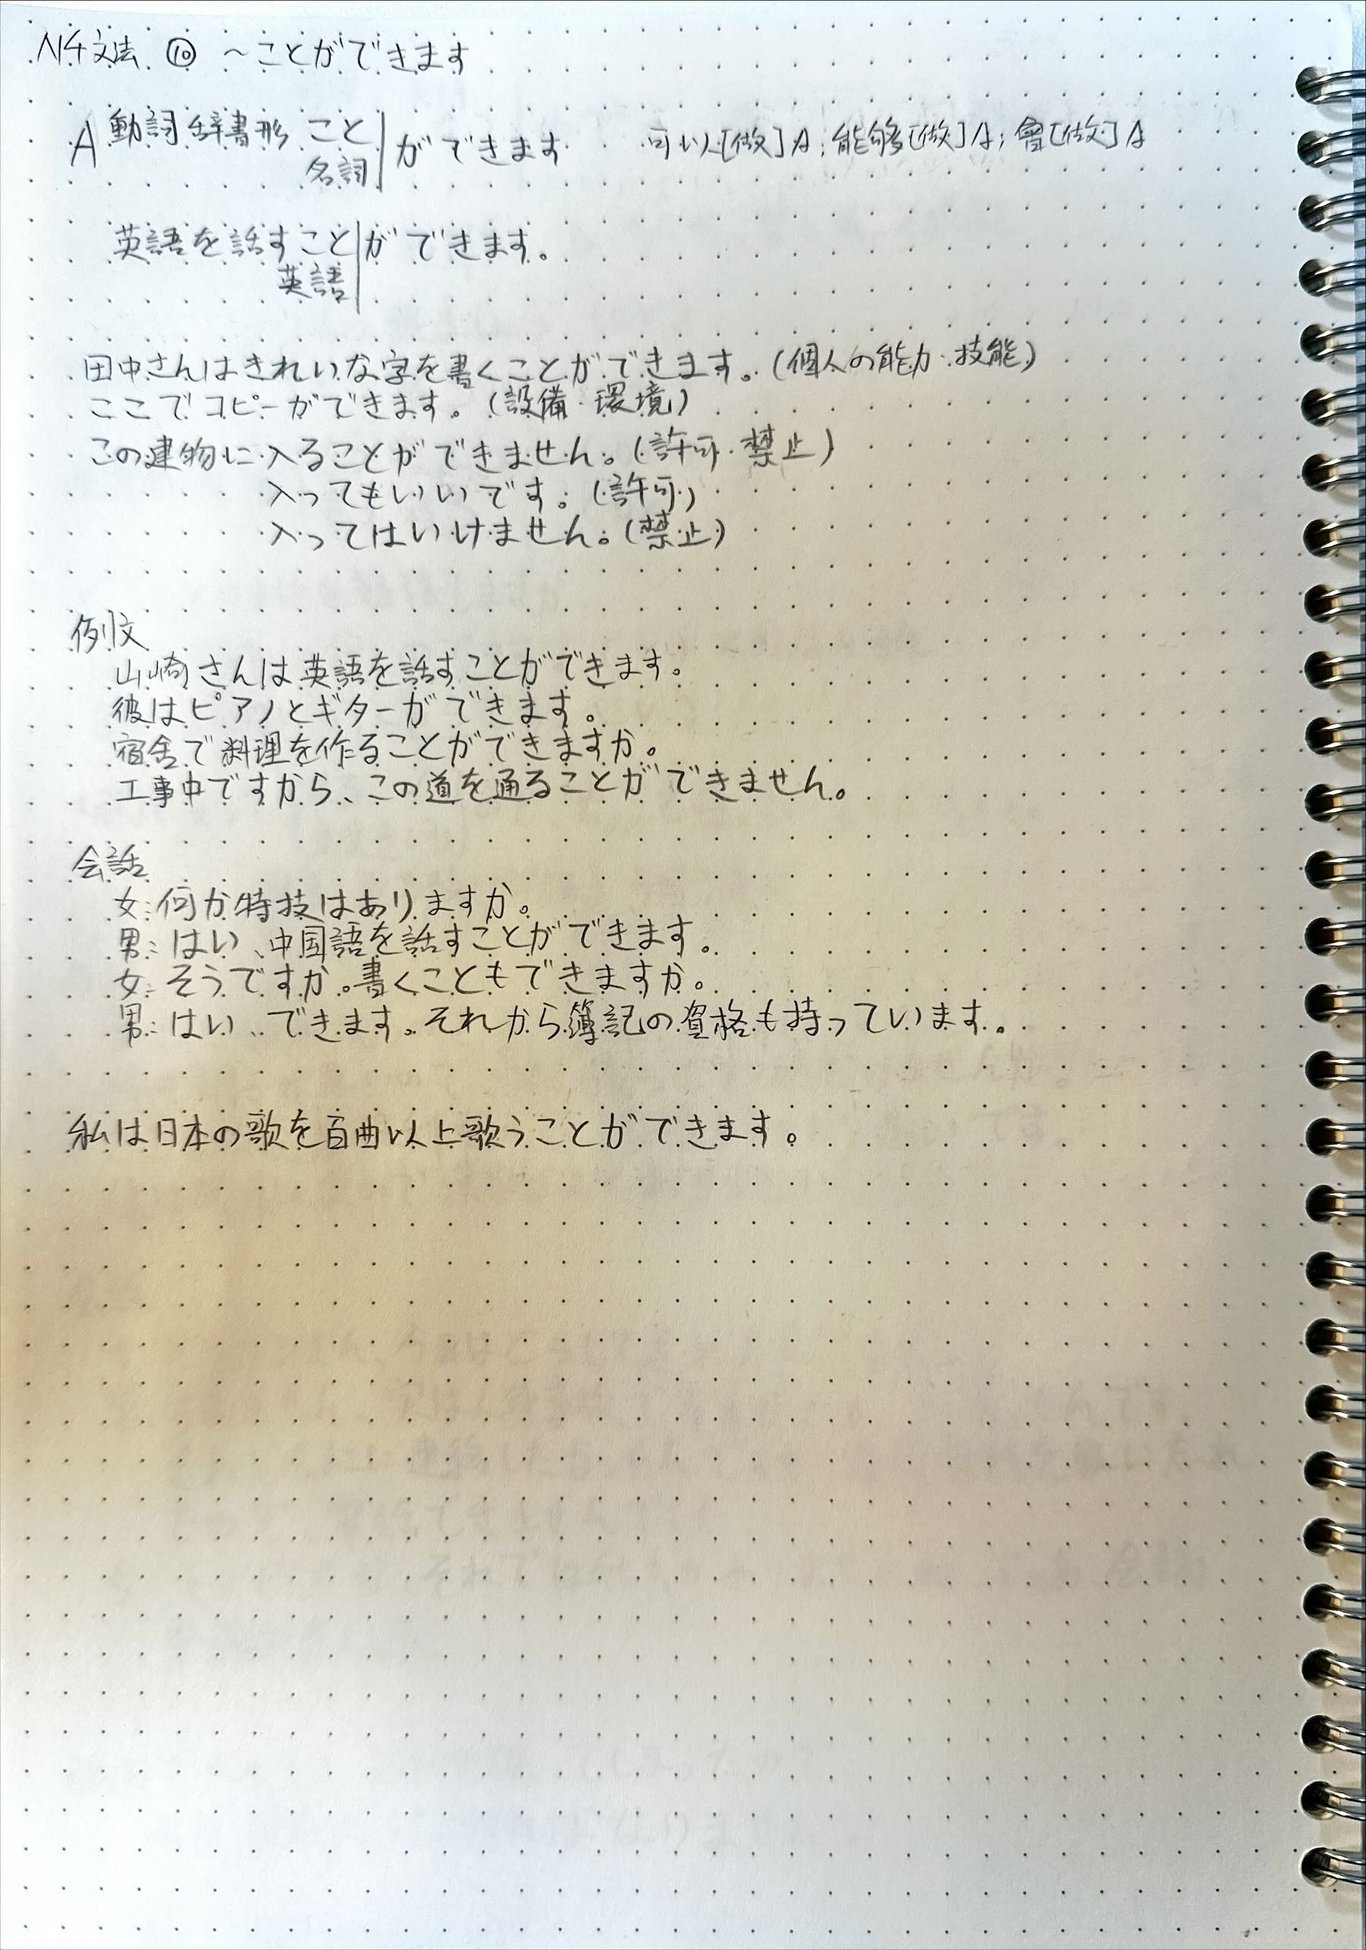 N4文法 ⑩ ～ことができます
A 動詞辞書形 こと が できます 可以[做]A; 能够[做]A; 會[做]A
名詞
英語を話すこと ができます。
英語
田中さんはきれいな字を書くことができます。(個人の能力・技能)
ここでコピーができます。(設備・環境)
この建物に入ることができません。(許可・禁止)
入ってもいいです。(許可)
入ってはいけません。(禁止)
例文
山崎さんは英語を話すことができます。
彼はピアノとギターができます。
宿舎で料理を作ることができますか。
工事中ですから、この道を通ることができません。
会話
女:何か特技はありますか。
男:はい、中国語を話すことができます。
女:そうですか。書くこともできますか。
男:はい、できます。それから簿記の資格も持っています。
私は日本の歌を百曲以上歌うことができます。